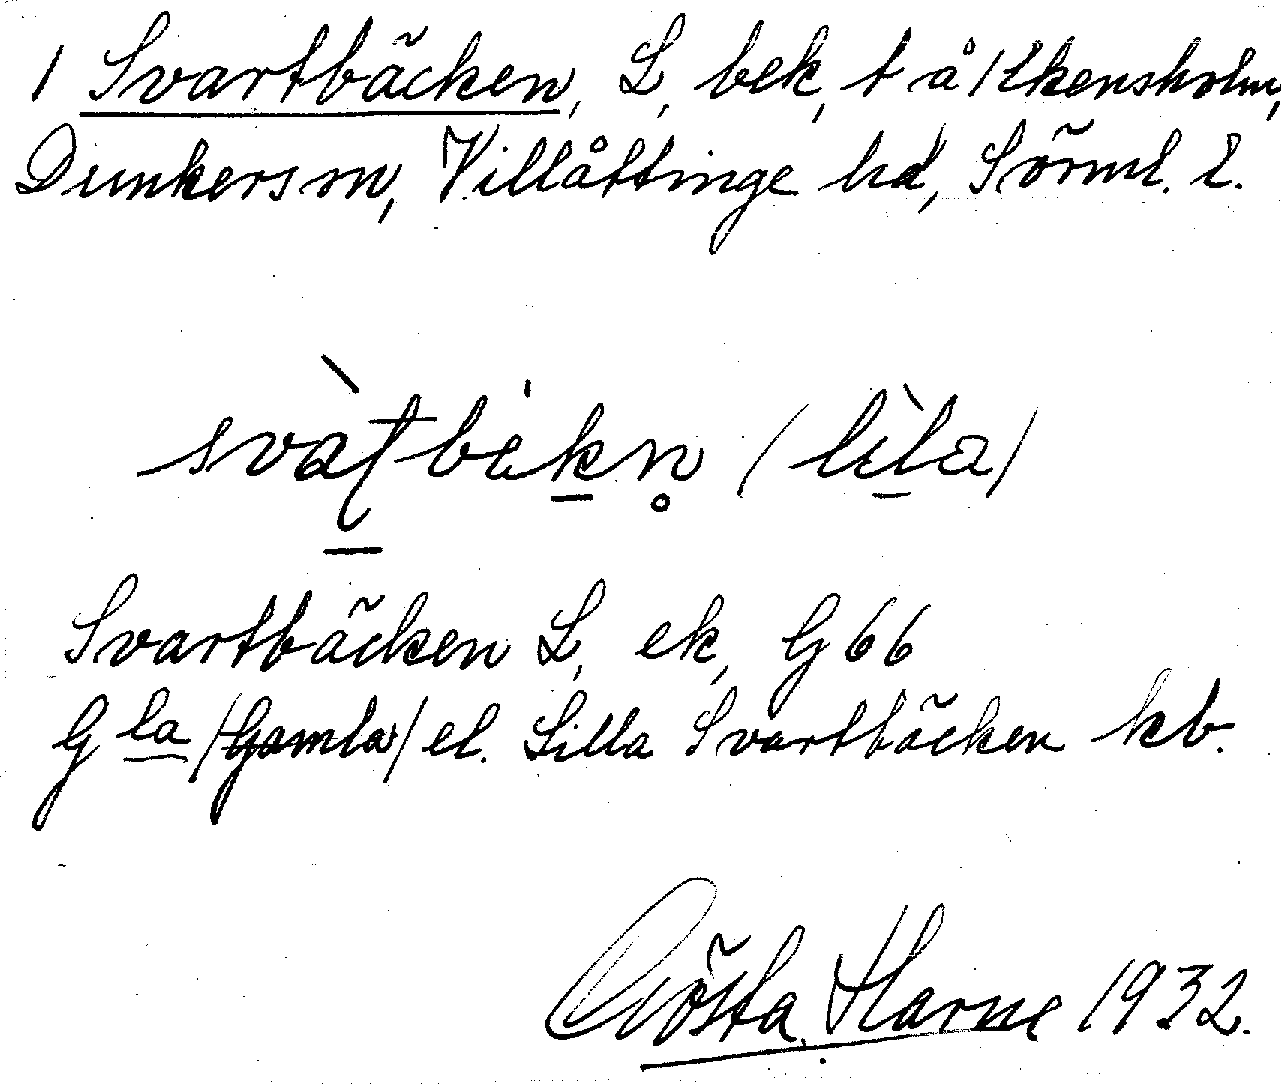 1 Svartbäcken, L, bek, t å Ekensholm,
Dunkers sn, Villåttinge hd, Sörml. l.
svàṭbèkn̥ (lìla)
Svartbäcken L, ek, G 66
G la /Gamla/ el. Lilla Svartbäcken kb.
Gösta Harne 1932.